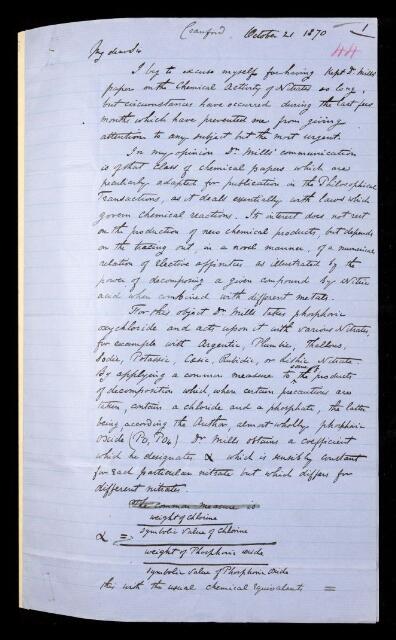 Cranford. October 21 1870
1
44
My dear Sir
I beg to excuse myself for having kept Dr Mills'
paper on the Chemical Activity of Nitrates so long,
but circumstances have occurred during the last few
months which have prevented me from giving
attention to any subject but the most urgent.
In my opinion Dr Mills' communication
is of that class of chemical papers which are
peculiarly adapted for publication in the Philosophical
Transactions, as it deals essentially with laws which
govern chemical reactions. Its interest does not rest
on the production of new chemical products, but depends
on the tracing out, in a novel manner, of a numerical
relation of elective affinities as illustrated by the
power of decomposing a given compound by Nitric
acid when combined with different metals.
For this object Dr Mills takes phosphoric
oxychloride and acts upon it with various Nitrates,
for example with Argentic, Plumbic, Thallous,
Sodic, Potassic, Cæsic, Rubidic, or Lithic Nitrate.
By applying a common measure to the products
of decomposition which, when certain precautions are
taken, contain a chloride and a phosphate, the latter
being according the Author, almost wholly, phosphoric
oxide (PO, PO4) Dr Mills obtains a coefficient
which he designates α which is sensibly constant
for each particular nitrate but which differs for
different nitrates.
The common measure is
weight of chlorine
α = symbolic value of chlorine
weight of Phosphoric oxide
symbolic value of Phosphoric oxide
this with the usual chemical equivalents =